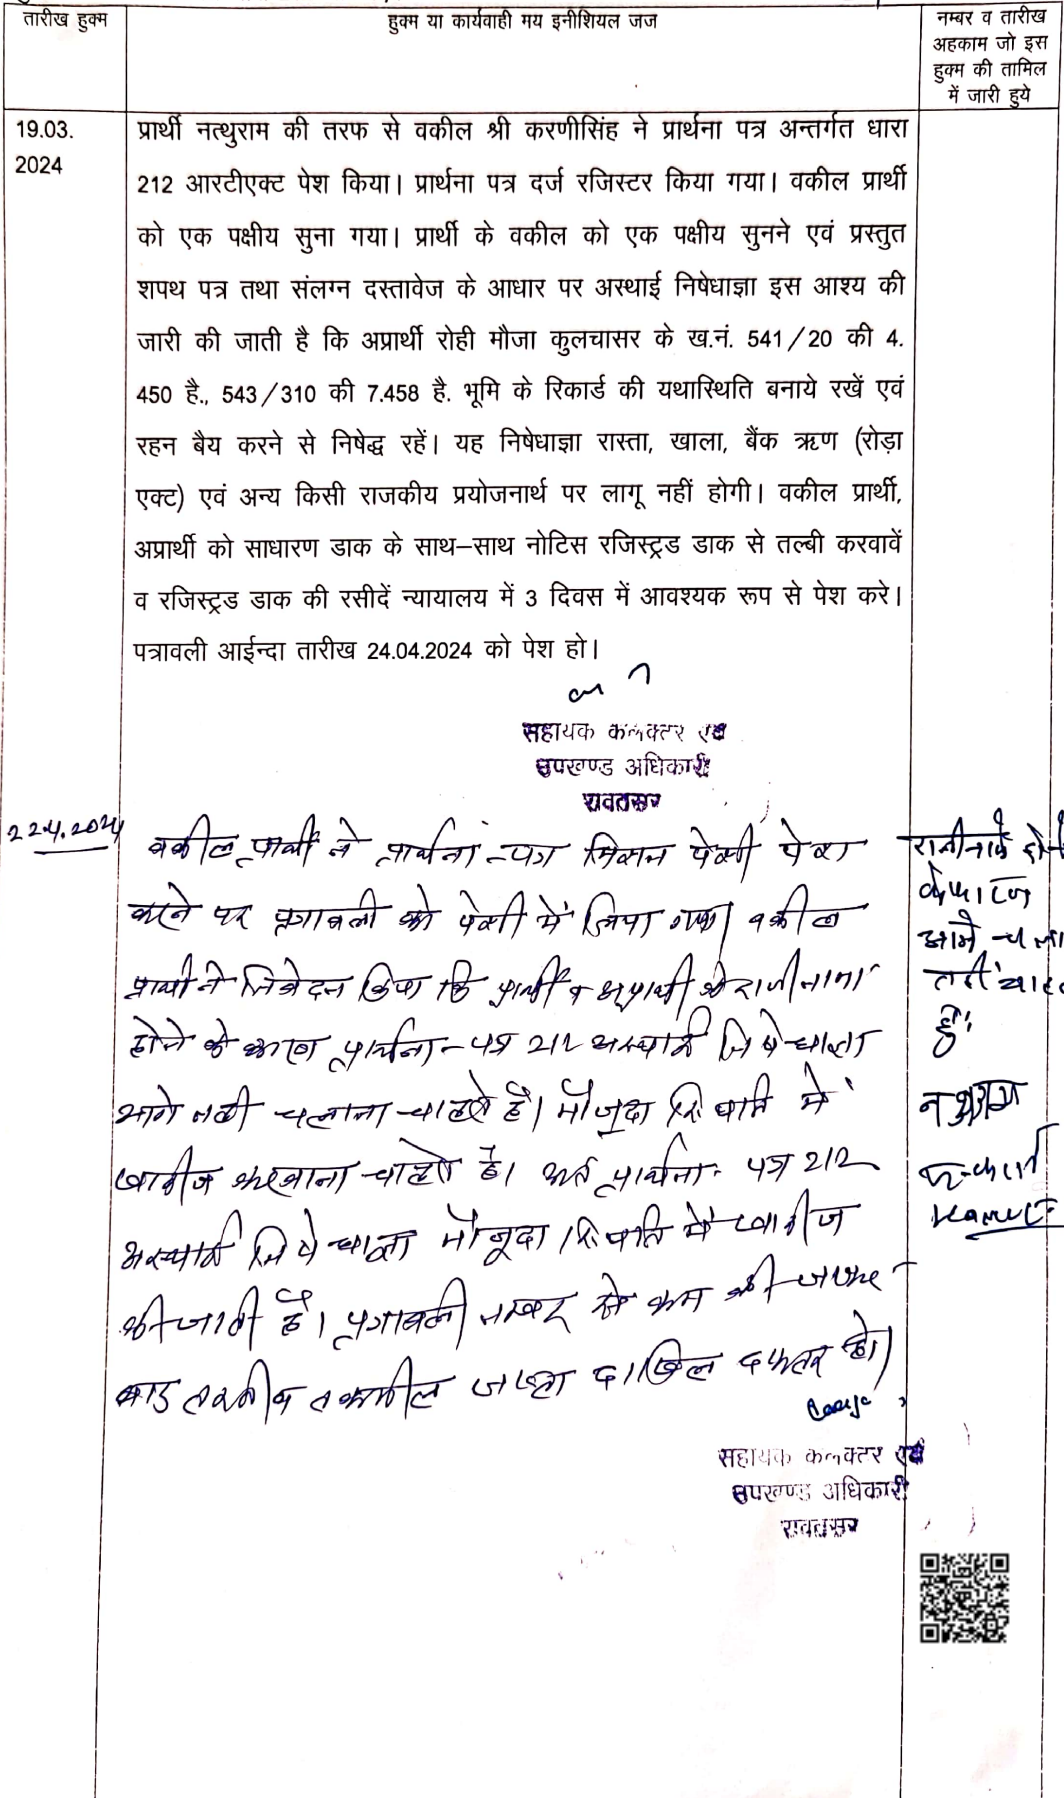 तारीख हुक्म
हुक्म या कार्यवाही मय इनीशियल जज
नम्बर व तारीख
अहकाम जो इस
हुक्म की तामिल
में जारी हुये
19.03.
2024
प्रार्थी नत्थुराम की तरफ से वकील श्री करणीसिंह ने प्रार्थना पत्र अन्तर्गत धारा
212 आरटीएक्ट पेश किया। प्रार्थना पत्र दर्ज रजिस्टर किया गया। वकील प्रार्थी
को एक पक्षीय सुना गया। प्रार्थी के वकील को एक पक्षीय सुनने एवं प्रस्तुत
शपथ पत्र तथा संलग्न दस्तावेज के आधार पर अस्थाई निषेधाज्ञा इस आश्य की
जारी की जाती है कि अप्रार्थी रोही मौजा कुलचासर के ख.नं. 541/20 की 4.
450 है., 543/310 की 7.458 है. भूमि के रिकार्ड की यथास्थिति बनाये रखें एवं
रहन बैय करने से निषेद्ध रहें। यह निषेधाज्ञा रास्ता, खाला, बैंक ऋण (रोड़ा
एक्ट) एवं अन्य किसी राजकीय प्रयोजनार्थ पर लागू नहीं होगी। वकील प्रार्थी,
अप्रार्थी को साधारण डाक के साथ-साथ नोटिस रजिस्ट्रड डाक से तल्बी करवावें
व रजिस्ट्रड डाक की रसीदें न्यायालय में 3 दिवस में आवश्यक रूप से पेश करे।
पत्रावली आईन्दा तारीख 24.04.2024 को पेश हो।
सहायक कलक्टर एवं
उपखण्ड अधिकारी
रावतसर
22.4.2024
वकील प्रार्थी ने प्रार्थना-पत्र मिसल पेसी पेश
करने पर पत्रावली को पेसी में लिया गया। वकील
प्रार्थी ने निवेदन किया कि प्रार्थी व अप्रार्थी के राजीनामा
होने के कारण प्रार्थना-पत्र 212 अस्थाई निषेधाज्ञा
आगे नही चलाना चाहते है। मौजूदा स्थिति में
खारीज करवाना चाहते है। अतः प्रार्थना-पत्र 212
अस्थाई निषेधाज्ञा मौजूदा स्थिति में खारीज
की जाती है। पत्रावली नम्बर से कम की जाकर
बाद तरतीब तकमील जाब्ता दाखिल दफतर हो।
सहायक कलक्टर एवं
उपखण्ड अधिकारी
रावतसर
राजीनामे होने
के कारण
आगे चलाना
नहीं चाहते
है।
नथुराम